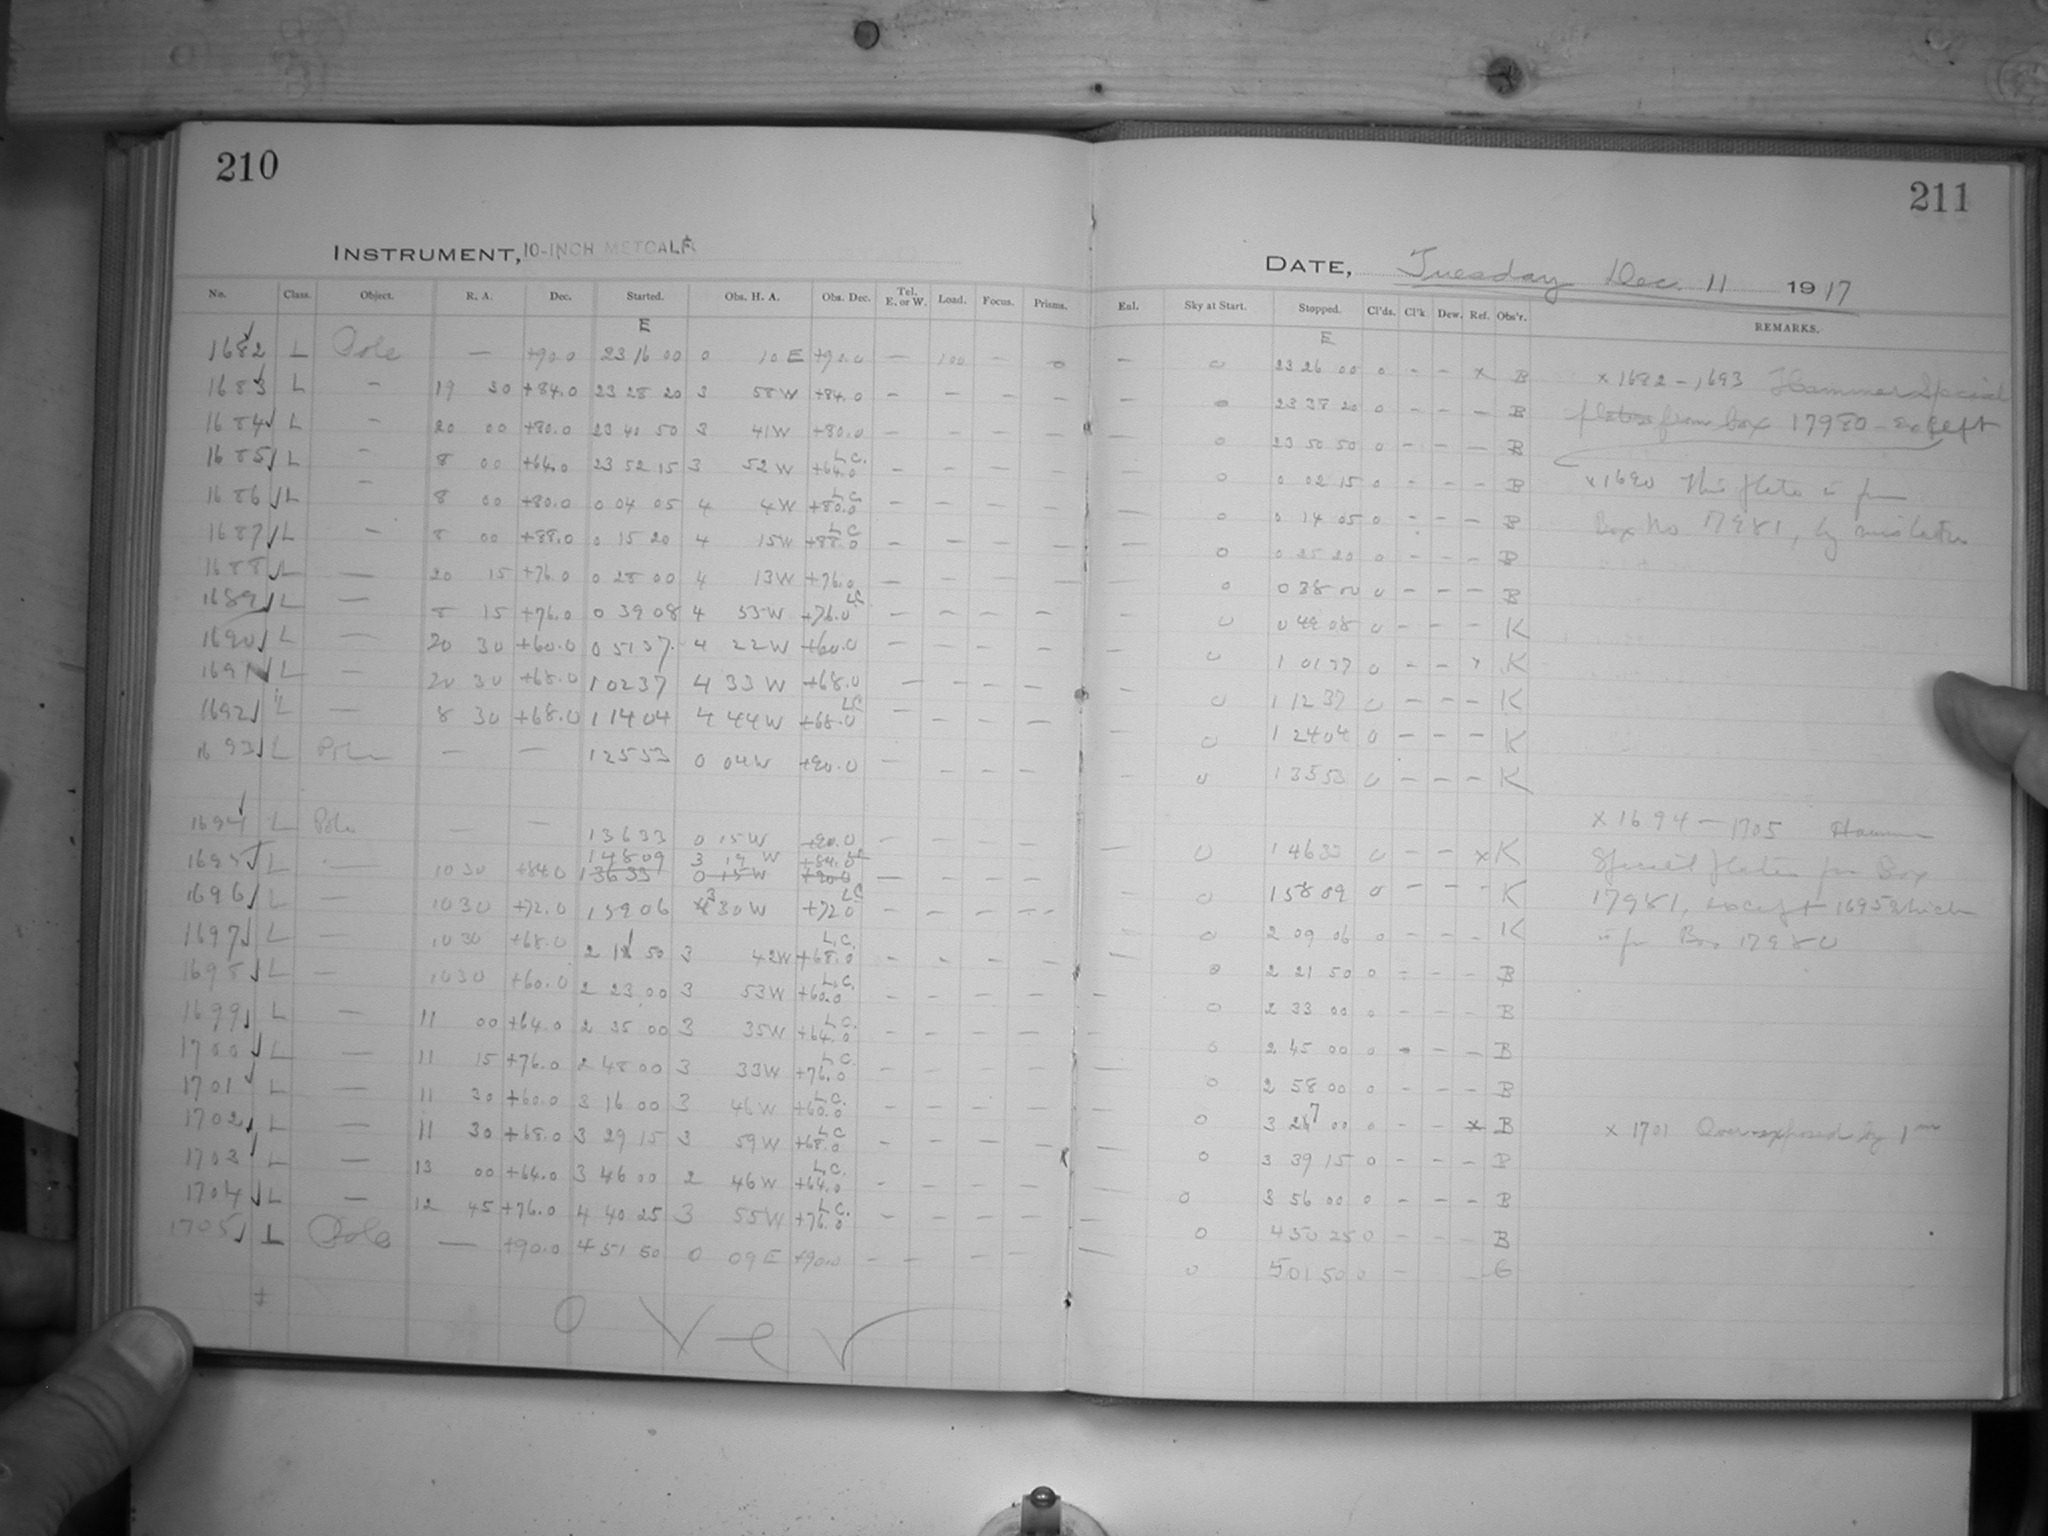 210
INSTRUMENT, 10-INCH METCALF
No. Class. Object. R. A. Dec. Started. Obs. H. A. Obs. Dec. Tel. E. or W. Load. Focus. Prisms.
E
1682 L Pole — +90.0 23 16 00 0 10 E +90.0 — 100 — 0
1683 L - 19 30 +84.0 23 28 20 3 58 W +84.0 — — — —
1684 L - 20 00 +80.0 23 40 50 3 41 W +80.0 — — — —
1685 L - 8 00 +64.0 23 52 15 3 52 W L.C. +64.0 - — — —
1686 L - 8 00 +80.0 0 04 05 4 4 W L.C. +80.0 — — — —
1687 L - 8 00 +88.0 0 15 20 4 15 W L.C. +88.0 — — — —
1688 L — 20 15 +76.0 0 28 00 4 13 W +76.0 — — — —
1689 L — 8 15 +76.0 0 39 08 4 33 W L.C. +76.0 — — — —
1690 L — 20 30 +60.0 0 51 37 4 22 W +60.0 — — — —
1691 L — 20 30 +68.0 1 02 37 4 33 W +68.0 — — — —
1692 L — 8 30 +68.0 1 14 04 4 44 W L.C. +68.0 — — — —
1693 L Pole — — 1 25 53 0 04 W +90.0 — — — —
1694 L Pole — — 1 36 33 0 15 W +90.0 — — — —
1 48 09 3 19 W +84.0 LC
1695 L — 10 30 +84.0 1 36 33 0 15 W +90.0 — — — —
1696 L — 10 30 +72.0 1 59 06 3 30 W L.C. +72.0 — — — —
1697 L — 10 30 +68.0 2 11 50 3 42 W L.C. +68.0 — — — —
1698 L — 10 30 +60.0 2 23 00 3 53 W L.C. +60.0 — — — —
1699 L — 11 00 +64.0 2 35 00 3 35 W L.C. +64.0 — — — —
1700 L — 11 15 +76.0 2 48 00 3 33 W L.C. +76.0 — — — —
1701 L — 11 30 +60.0 3 16 00 3 46 W L.C. +60.0 — — — —
1702 L — 11 30 +68.0 3 29 15 3 59 W L.C. +68.0 — — — —
1703 L — 13 00 +64.0 3 46 00 2 46 W L.C. +64.0 — — — —
1704 L — 12 45 +76.0 4 40 25 3 55 W L.C. +76.0 — — — —
1705 L Pole — +90.0 4 51 50 0 09 E +90.0 — — — —
Over
211
DATE, Tuesday Dec. 11 1917
Enl. Sky at Start. Stopped. Cl'ds. Cl'k Dew. Ref. Obs'r. REMARKS.
E
— 0 23 26 00 0 - - x B x 1682 - 1693 Hammer Special
— 0 23 38 20 0 - - - B plates from box 17980 - except
— 0 23 50 50 0 - - - B
— 0 0 02 15 0 - - - B x 1690 This plate is from
— 0 0 14 05 0 - - - B Box No 17981, by mistake
— 0 0 25 20 0 - - - B
— 0 0 38 00 0 - - - B
— 0 0 49 08 0 - - - K
— 0 1 01 37 0 - - x K
— 0 1 12 37 0 - - - K
— 0 1 24 04 0 - - - K
— 0 1 35 53 0 - - - K
x 1694 — 1705 Hammer
0 1 46 33 0 - - x K Special plates from Box
0 1 58 09 0 - - - K 17981, except 1695 which
0 2 09 06 0 - - - K is from Box 17980
0 2 21 50 0 - - - B
— 0 2 33 00 0 - - - B
— 0 2 45 00 0 - - - B
— 0 2 58 00 0 - - - B
— 0 3 27 00 0 - - x B x 1701 Overexposed by 1m
— 0 3 39 15 0 - - - B
— 0 3 56 00 0 - - - B
— 0 4 50 25 0 - - - B
— 0 5 01 50 0 - - G